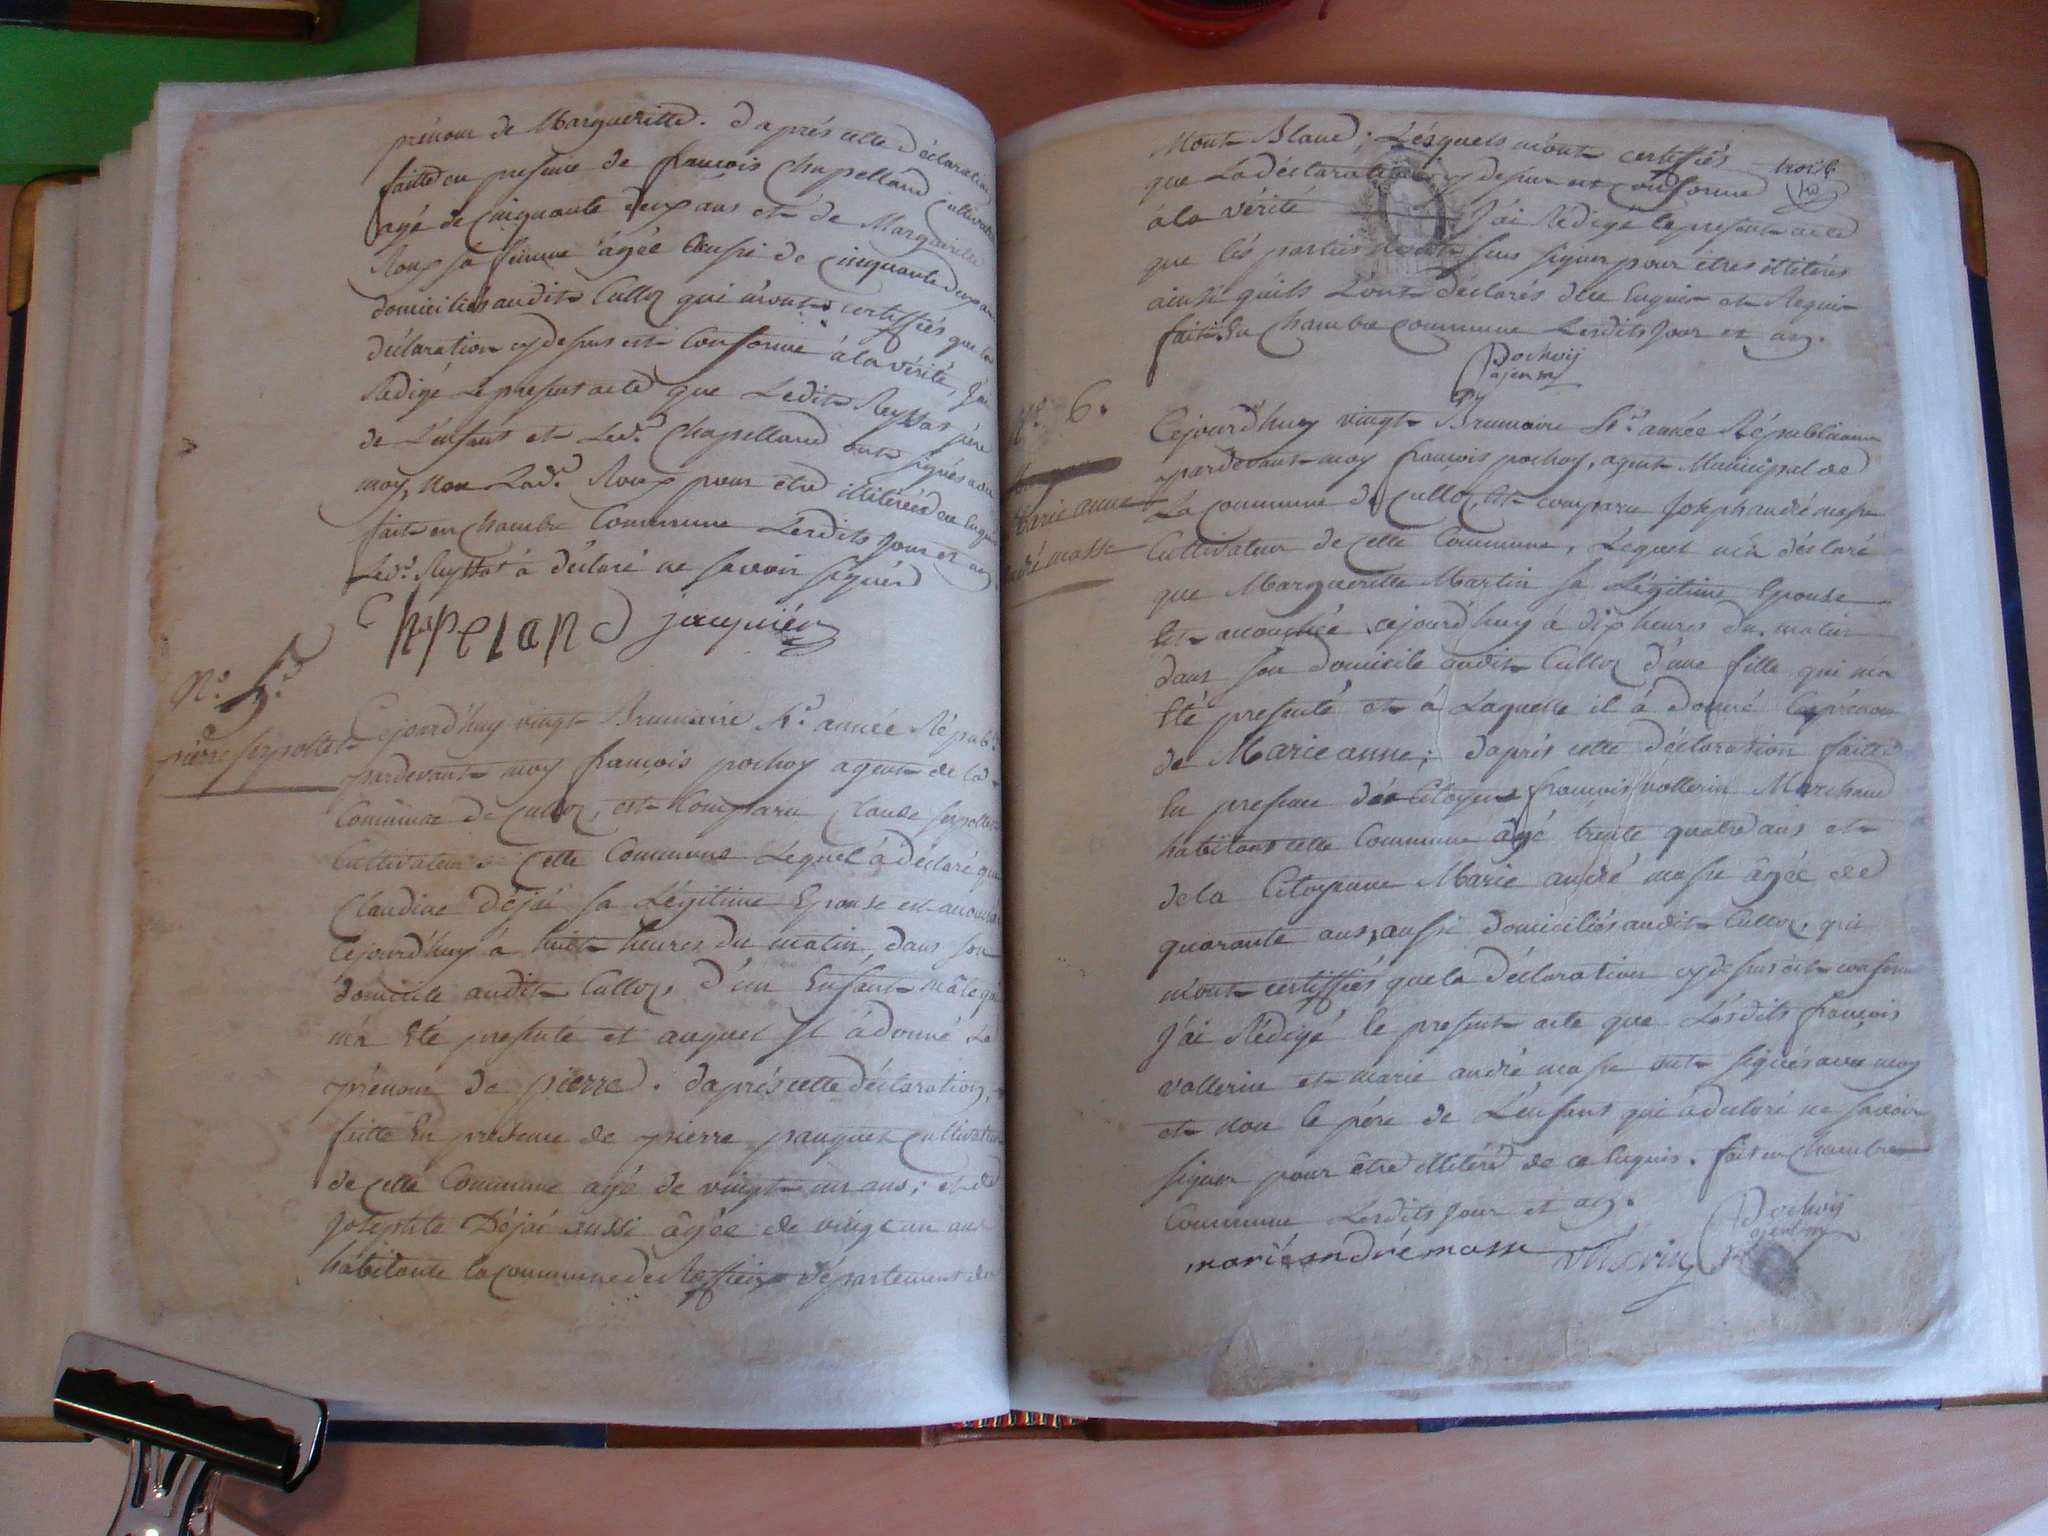 prénom de Margueritte. D'après cette déclaration
faitte en presence de françois Chapelland Cultivateur
agé de cinquante deux ans et de Margueritte
Roux sa femme âgée aussi de cinquante deux ans
domiciliés audit Culloz qui m'ont certiffiés que la
déclaration cy dessus est Conforme à la vérité, J'ai
Rédigé Le present acte que Ledit Reyssat père
de L'enfant et Led.t Chapelland ont signés avec
moy, non Lad.te Roux pour être illitérée de ce Enquis
fait en chambre Commune Lesdits Jour et an.
Led.t Reyssat à déclaré ne savoir signér
Chapeland jacquiér
N.o 5.
pierre serpollet
Cejourd'huy vingt Brumaire 5.e année Répub.
pardevant moy françois pochoy agent de la
Commune de Culloz, est Comparu Claude serpollet
Cultivateur de Cette Commune Lequel à déclaré que
Claudine Déjai sa Légitime Epouse est accouchée
Cejourd'huy à huit heures du matin, dans son
domicile audit Culloz, d'un Enfant mâle qui
m'a Eté presenté et auquel Il à donné Le
prénom de pierre. d'après cette déclaration,
faitte En presence de pierre pauguet cultivateur
de Cette Commune agé de vingt un ans; et de
Josephte Déjai aussi âgée de vingt un ans
habitante la commune de département du
Mont Blanc; Lésquels m'ont certiffiés
trois
que La déclaration cy dessus est conforme
à la vérité J'ai Rédigé le present acte
que lés parties n'ont sus signer pour êtres illitérés
ainsi qu'ils L'ont déclarés de ce Enquis et Requis
fait En Chambre commune Lesdits Jour et an.
Pochoy
agent m
N.o 6.
Marie anne
andré masse
Cejourd'huy vingt Brumaire 5.e année Républicaine
pardevant moy françois pochoy, agent Municipal de
La commune de Culloz, est comparu Joseph andré masse
Cultivateur de Cette Commune, Lequel m'a déclaré
que Margueritte Martin sa Légitime Epouse
Est accouchée cejourd'huy à dix heures du matin
dans son domicile audit Culloz d'une fille qui m'a
Eté presenté et à Laquelle il à donné Le prénom
de Marie anne; d'après cette déclaration faitte
En presence de Citoyens françois vollerin Marchand
habitant cette Commune âgé trente quatre ans et
de la Citoyenne Marie andré masse âgée de
quarante ans, aussi domiciliés audit Culloz, qui
m'ont certiffiés que la déclaration cy dessus est conforme
J'ai Rédigé le present acte que Lésdits françois
vollerin et marie andré masse ont signés avec moy
et non le pére de L'enfant qui à déclaré ne savoir
signer pour être illitéré de ce Enquis. fait en Chambre
Commune Lesdits Jour et an.
marie andré masse Pochoy
agent m